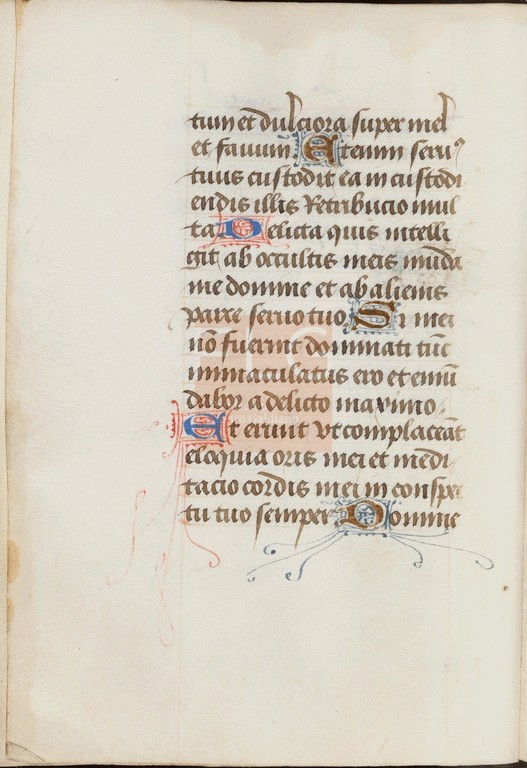 tum et dulciora super mel
et fauum Etenim seruꝰ
tuus custodit ea in custodi
endis illis Retribucio mul
ta Delicta quis intelli
git ab occultis meis munda
me domine et ab alienis
parce seruo tuo Si mei
nō fuerint dominati tūc
immaculatus ero et emū
dabor a delicto maximo.
Et erunt vt complaceāt
eloquia oris mei et medi
tacio cordis mei in conspe
tu tuo semper Domine